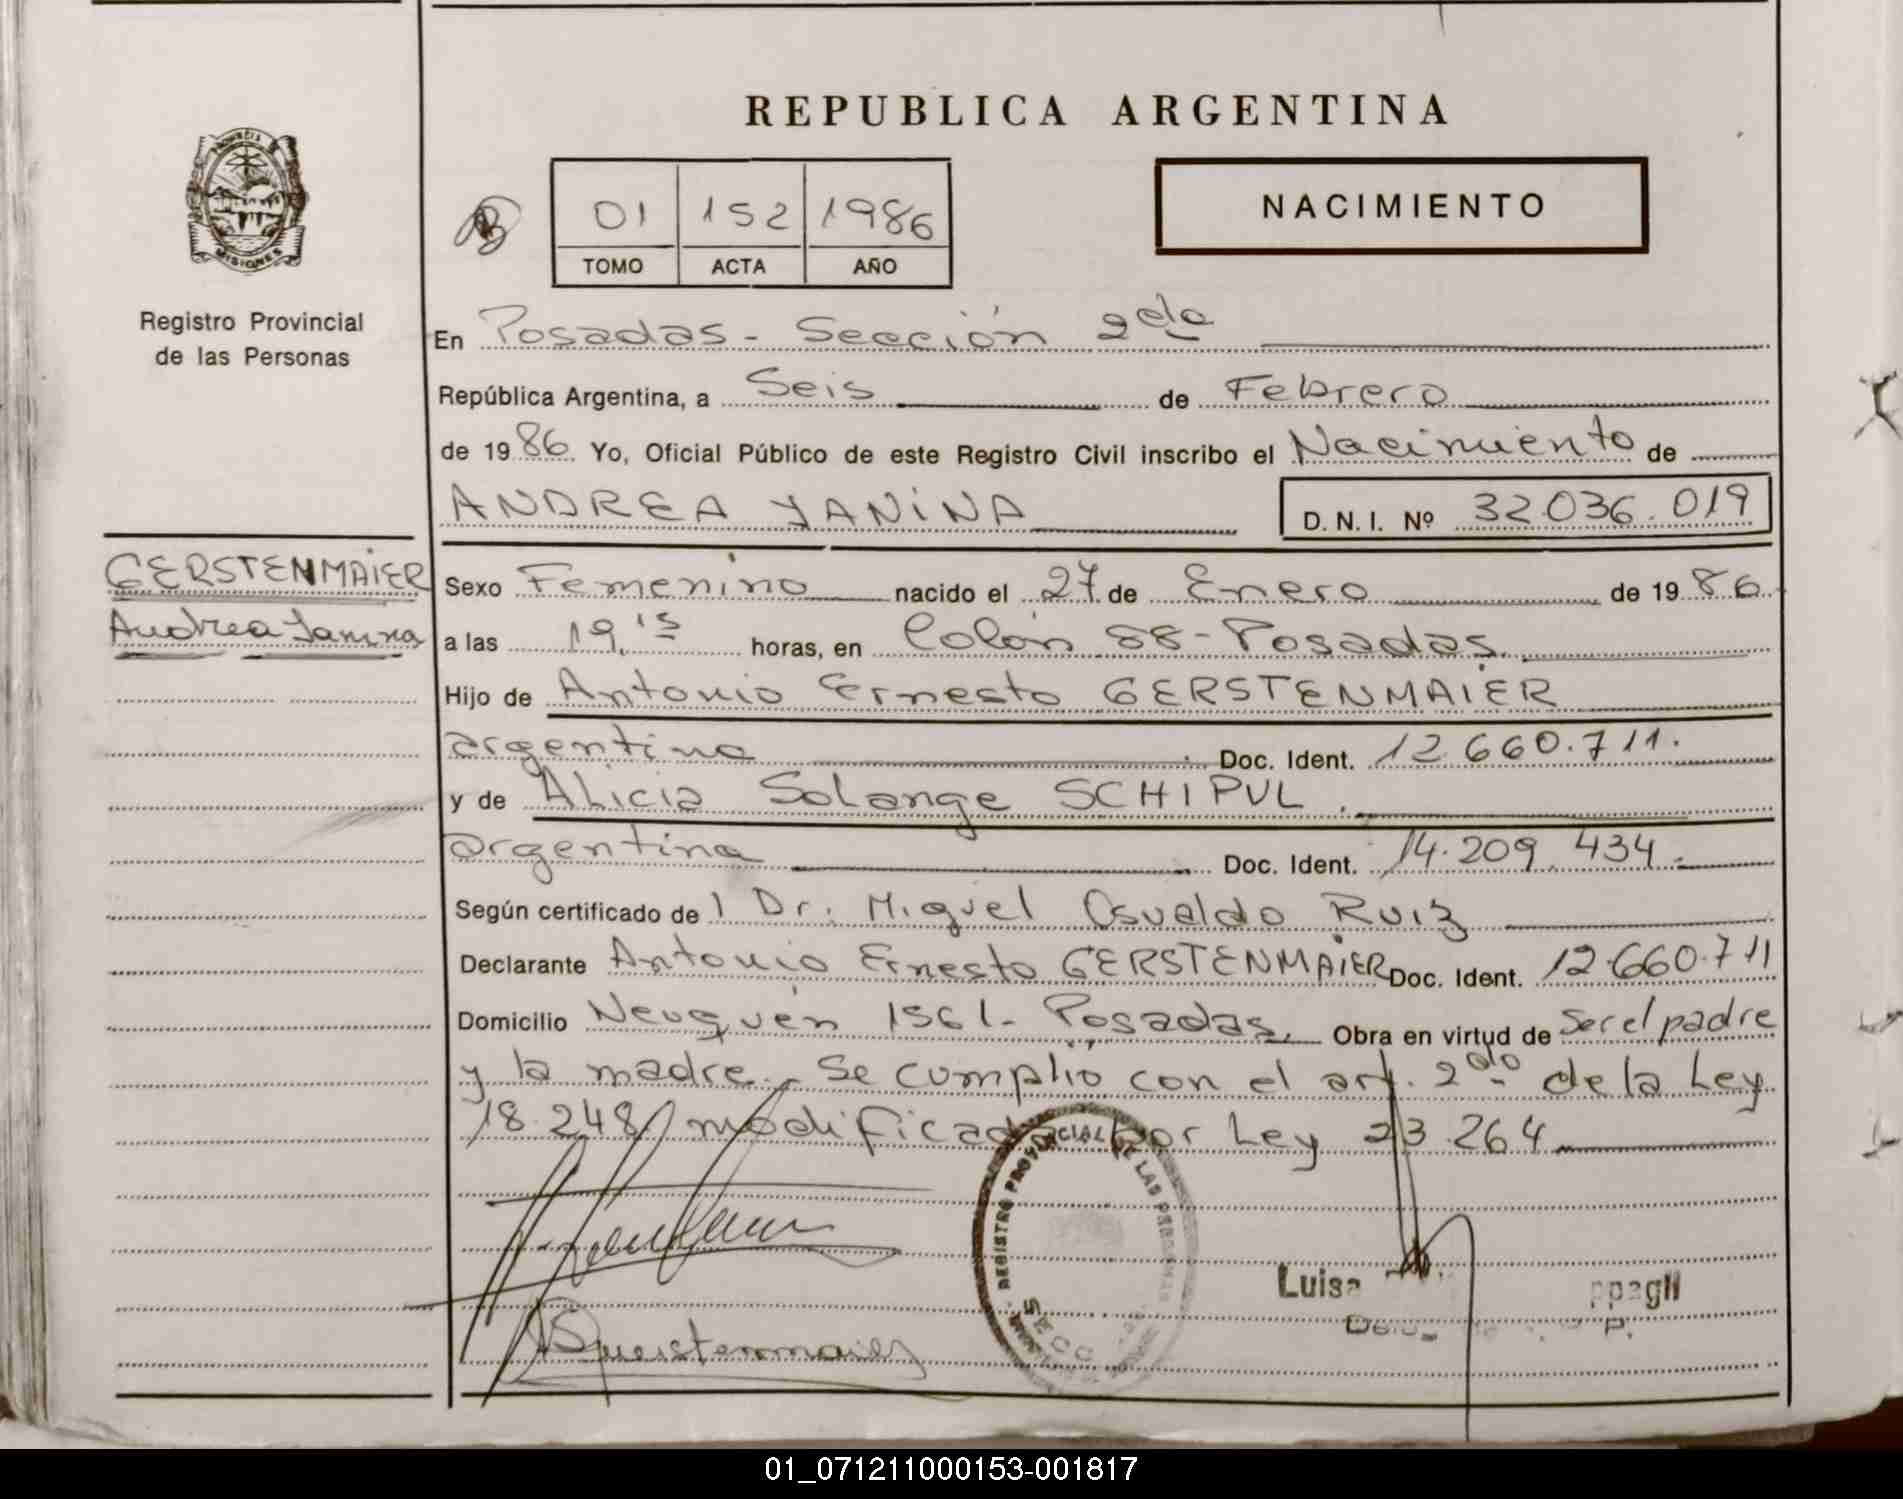 REPUBLICA ARGENTINA
PROVINCIA DE
MISIONES
Registro Provincial
de las Personas
01 152 1986
TOMO ACTA AÑO
NACIMIENTO
En Posadas - Sección 2da
República Argentina, a Seis de Febrero
de 1986 Yo, Oficial Público de este Registro Civil inscribo el Nacimiento de
ANDREA YANINA D.N.I. Nº 32.036.019
GERSTENMAIER
Andrea Yanina
Sexo Femenino nacido el 27 de Enero de 1986
a las 19,15 horas, en Colón 88 - Posadas.
Hijo de Antonio Ernesto GERSTENMAIER
argentino Doc. Ident. 12.660.711.
y de Alicia Solange SCHIPUL.
argentina Doc. Ident. 14.209.434.-
Según certificado de l Dr. Miguel Osvaldo Ruiz
Declarante Antonio Ernesto GERSTENMAIER Doc. Ident. 12.660.711
Domicilio Neuquén 1561- Posadas. Obra en virtud de ser el padre
y la madre.- Se cumplió con el art. 2do de la Ley
18.248/ modificada por Ley 23.264
REGISTRO PROVINCIAL DE LAS PERSONAS
Luisa
01_071211000153-001817